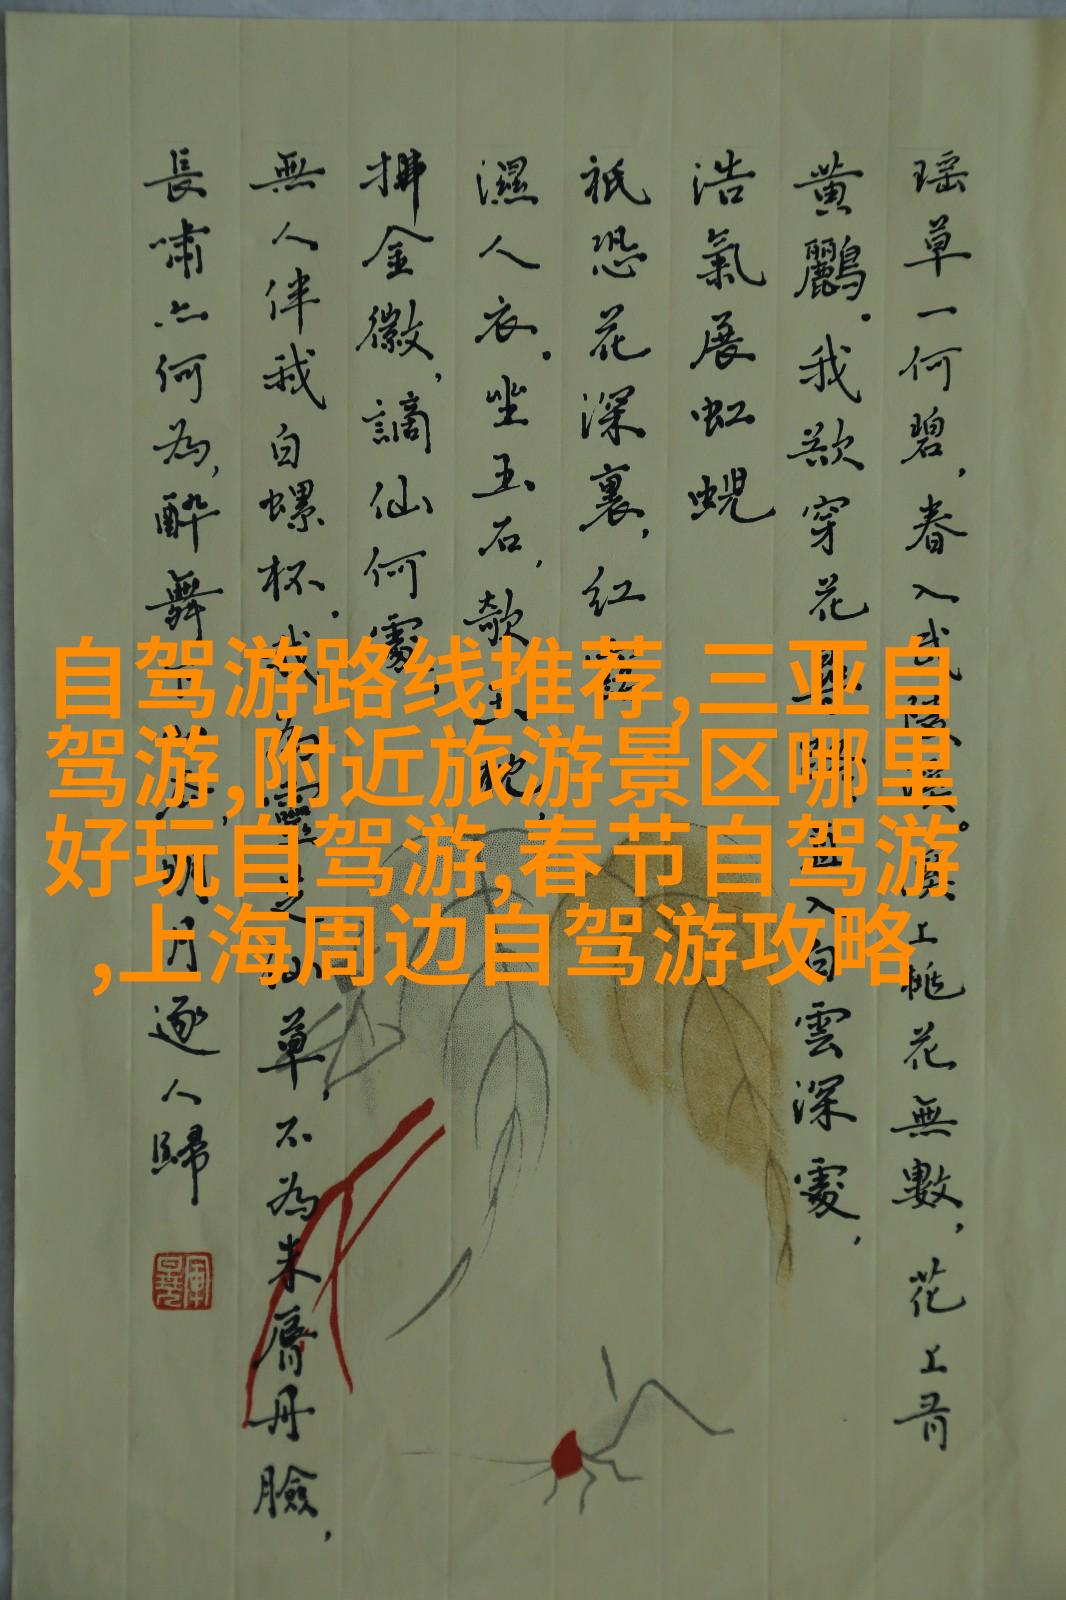 瑶草一何碧，春入武陵溪。溪上桃花無數，花上有
黄鸝。我欲穿花尋路，直入白雲深處，
浩氣展虹蜺
祇恐花深裏，紅露
濕人衣。坐玉石，欹玉枕，
拂金徽，謫仙何處，
無人伴我白螺杯。我為靈芝仙草，不為朱脣丹臉，
長嘯亦何為，醉舞下山去，明月逐人歸
自驾游路线推荐,三亚自
驾游,附近旅游景区哪里
好玩自驾游,春节自驾游
,上海周边自驾游攻略